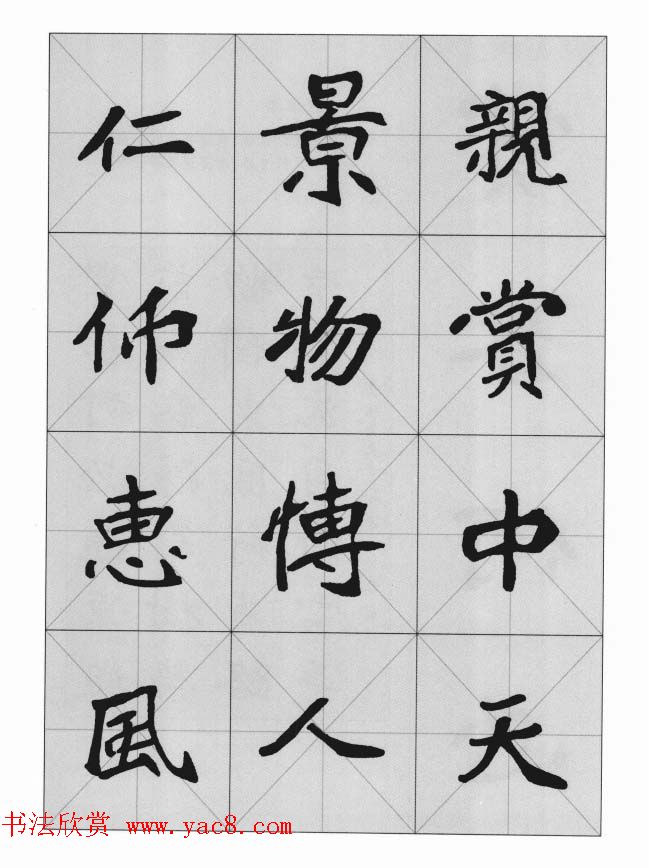 親賞中天
景物愽人
仁仰惠風
书法欣赏 www.yac8.com